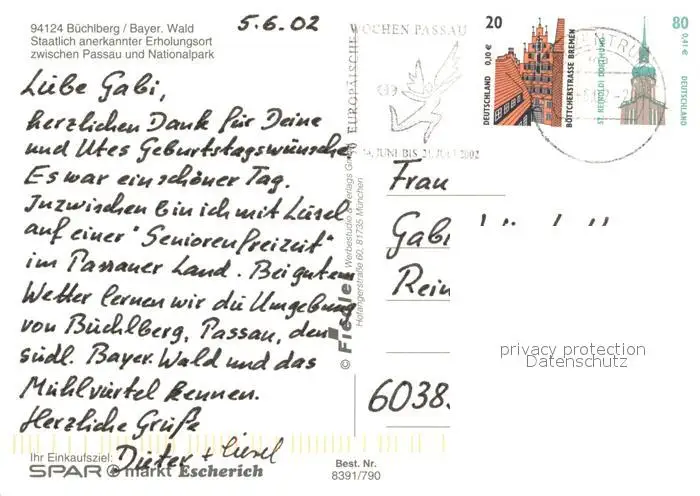 94124 Büchlberg / Bayer. Wald
Staatlich anerkannter Erholungsort
zwischen Passau und Nationalpark
5.6.02
Liebe Gabi,
herzlichen Dank für Deine
und Utes Geburtstagswünsche
Es war ein schöner Tag.
Inzwischen bin ich mit Liesel
auf einer "Seniorenfreizeit"
im Passauer Land. Bei gutem
Wetter lernen wir die Umgebung
von Büchlberg, Passau, den
südl. Bayer. Wald und das
Mühlviertel kennen.
Herzliche Grüße
Dieter + Liesel
Ihr Einkaufsziel:
SPAR markt Escherich
Best. Nr.
8391/790
© Fiedler Werbestudio & Verlags
Hofangerstraße 60, 81735 München
EUROPÄISCHE WOCHEN PASSAU
JUNI BIS 21. JULI 2002
20
0,10 €
DEUTSCHLAND
BÖTTCHERSTRASSE BREMEN
80
0,41 €
ST. REINOLDI DORTMUND
DEUTSCHLAND
Frau
Gabi
Rein
6038
privacy protection
Datenschutz